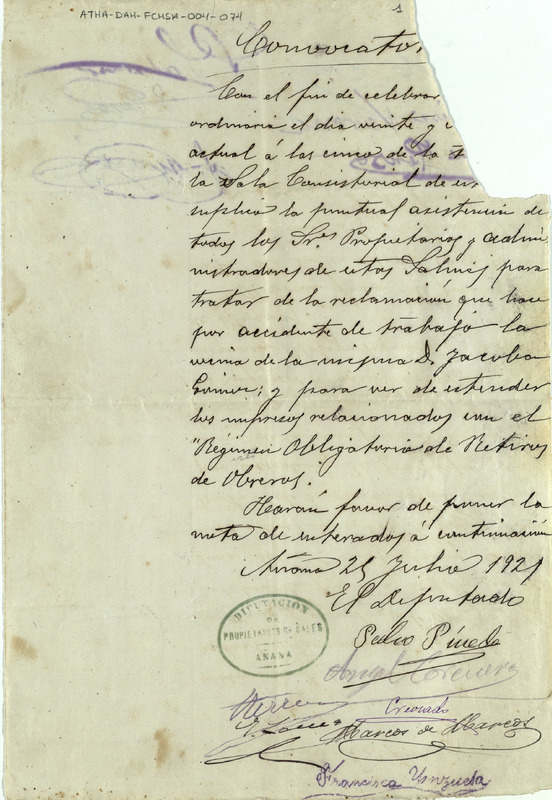 ATHA-DAH-FCMSA-004-074
1
Convocator
Con el fin de celebrar
ordinaria el dia veinte y
actual á las cinco de la
la Sala Consistorial de
suplico la puntual asistencia de
todos los Sres Propietarios y admi
nistradores de estas Salinas para
tratar de la reclamación que hace
por accidente de trabajo la
vecina de la misma D. Jacoba
y para ver de estender
los impresos relacionados con el
"Régimen Obligatorio de Retiros
de Obreros.
Harán favor de poner la
nota de enterados á continuación
Añana 25 Julio 1921
El Deputado
DIPUTACION
DE
PROPIETARIOS DE SALES
AÑANA
Pedro Pinedo
Angel
Marcos de Marcos
Francisca